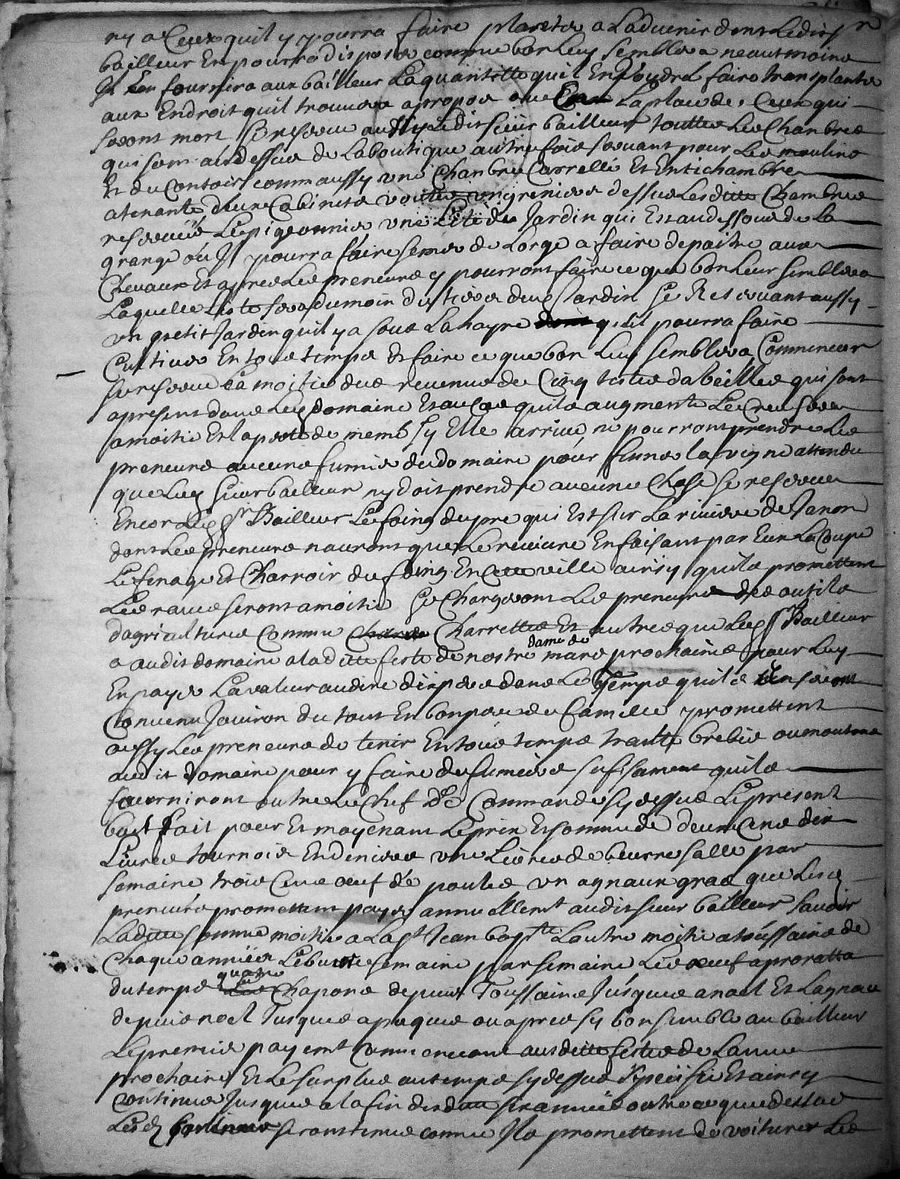 ny a Ceux quil y pourra faire planter a Ladvenir dont Ledit sr
bailleur En pourra disposer comme bon Luy semblera neantmoins
Il fournira aux bailleur La quantitte quil En foudra faire transplanter
aux Endroit quil trouvera apropos ou La place de Ceux qui
seront mort Se reserve aussy Ledit sieur bailleur touttes Les Chambres
qui sont audessus de La boutique autrefois servant pour Les moulins
Et du Contoir comm aussy une Chambre Carrelle Et Entichambre
atenante deux Cabinets voutes un grenier dessus Lesdittes Chambres
reserve Le pigeonnier une Liete du Jardin qui Est audessous de La
grange ou Il pourra faire semer de Lorge a faire depaitre aux
Chevaux Et apres Les preneurs y pourront faire ce que bon Leur semblera
Laquelle Liete sera du moin du tiers du Jardin Se Reservant aussy
un petit Jardin quil y a sous La haye quil pourra faire
Cultiver En tous temps Et faire ce que bon Luy semblera Comme aussy
se reserve La moitie des revenus de Cinq testes dabeilles qui sont
apresent dans Led domaine Et au cas quils augmente Le Creu sera
a moitie Et la perte de meme sy Elle arrive ne pourront prendre Les
preneurs aucuns fumier du domaine pour fumer la vigne attendu
que Led sieur bailleur ny doit prendre aucune Chose se reserve
Encor Led Sr Bailleur Le foing du pre qui Est sur La riviere de Janon
dont Les preneurs nauront que Le revivre En faisant par Eux La Coupe
Le fenage Et Charroir du foing En Cette ville ainsy quils promettent
Les raves seront a moitie Se Chargeront Les preneurs des outils
dagriculture Comme Charrettes Et autres que Led Sr Bailleur
a audit domaine a laditte feste de nostre dame de mars prochaine pour Luy
En payer La valeur au dire dexpers dans Le Temps quils En seront
Convenu Jouiron du tout En bon pere de famille promettent
aussy Les preneurs de tenir En tous temps trante brebis ou moutons
audit domaine pour y faire du fumier sufisament quils
fourniront outre Le Chef de Commande sy dessus Le present
bail fait pour Et moyenant Le prix Et somme de deux Cens dix
Livres tournois En deniers une Livre de beurre salle par
semaine trois Cens oeuf de poules un agnaux gras que Lesd
preneurs promettent payer annuellement audit sieur bailleur savoir
Laditte somme moitie a La St Jean bapte Lautre moitie a toussaint de
Chaque annees Le beurre semaine par semaine Les oeuf a proratta
du temps quatre Chapons depuis Toussaint Jusques a noel Et Lagnau
depuis noel Jusques a paques ou apres sy bon semble au bailleur
Le premier payemt Commencant ausdittes festes de Lannee
prochaine Et Le surplus au temps sy dessus specifie Et ainsy
Continuer Jusques a la fin desdittes six annees outre ce que dessus
Lesd preneurs seront tenus comme Ils promettent de voiturer Les